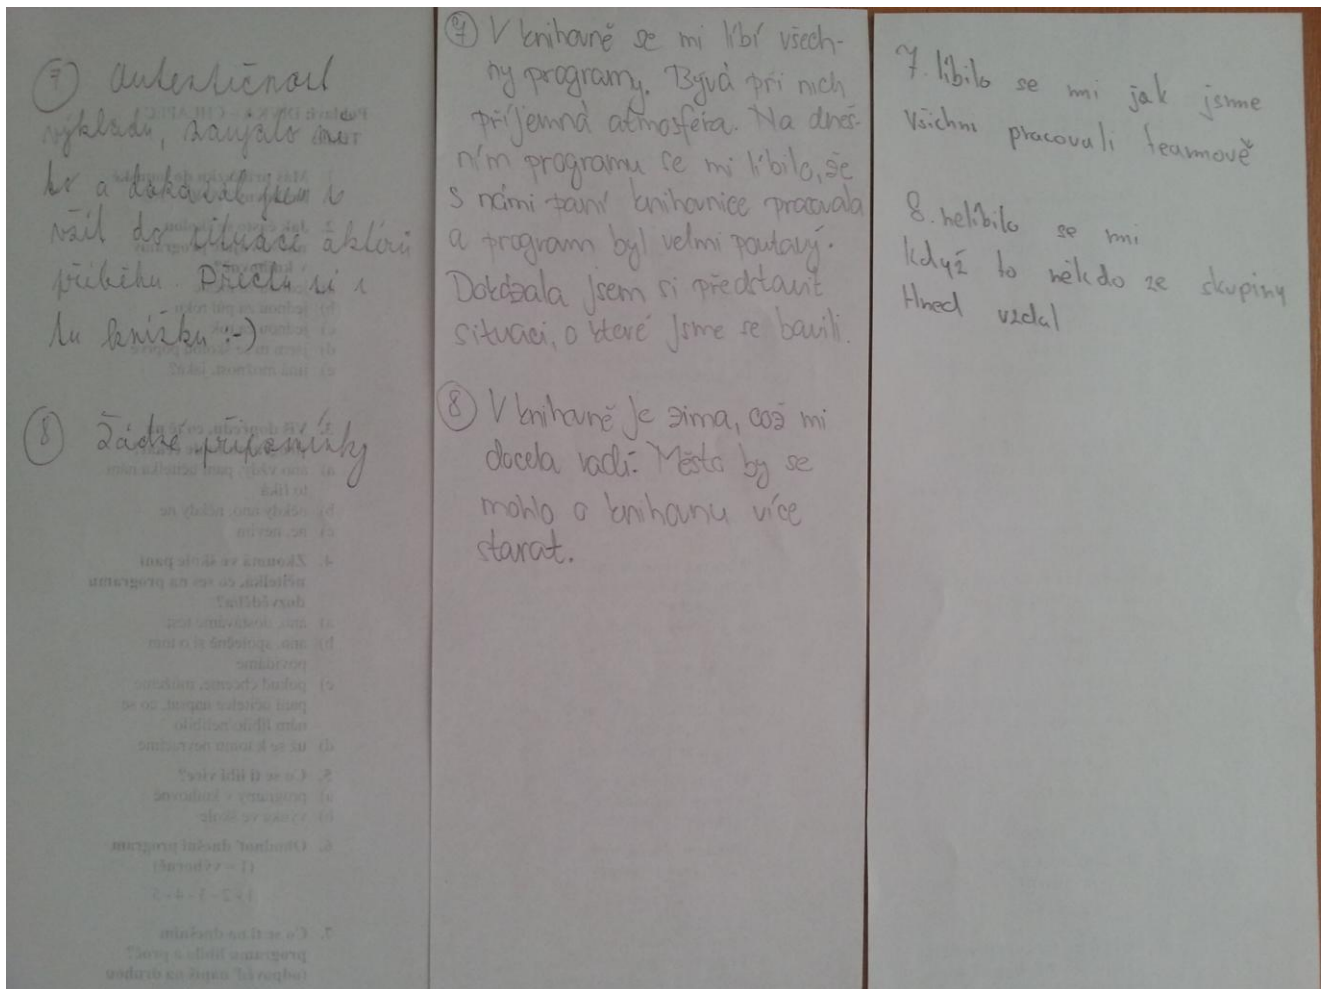 7 Autentičnost
výkladu, zaujalo mě
to a dokázal jsem s
vžít do situace aktérů
příběhu. Přečtu si i
tu knížku :-)
8 Žádné připomínky
7 V knihovně se mi líbí všech-
ny programy. Bývá při nich
příjemná atmosféra. Na dneš-
ním programu se mi líbilo, že
s námi paní knihovnice pracovala
a program byl velmi poutavý.
Dokázala jsem si představit
situaci, o které jsme se bavili.
8 V knihovně je zima, což mi
docela vadí. Město by se
mohlo o knihovnu více
starat.
7. líbilo se mi jak jsme
všichni pracovali teamově
8. nelíbilo se mi
když to někdo ze skupiny
Hned vzdal